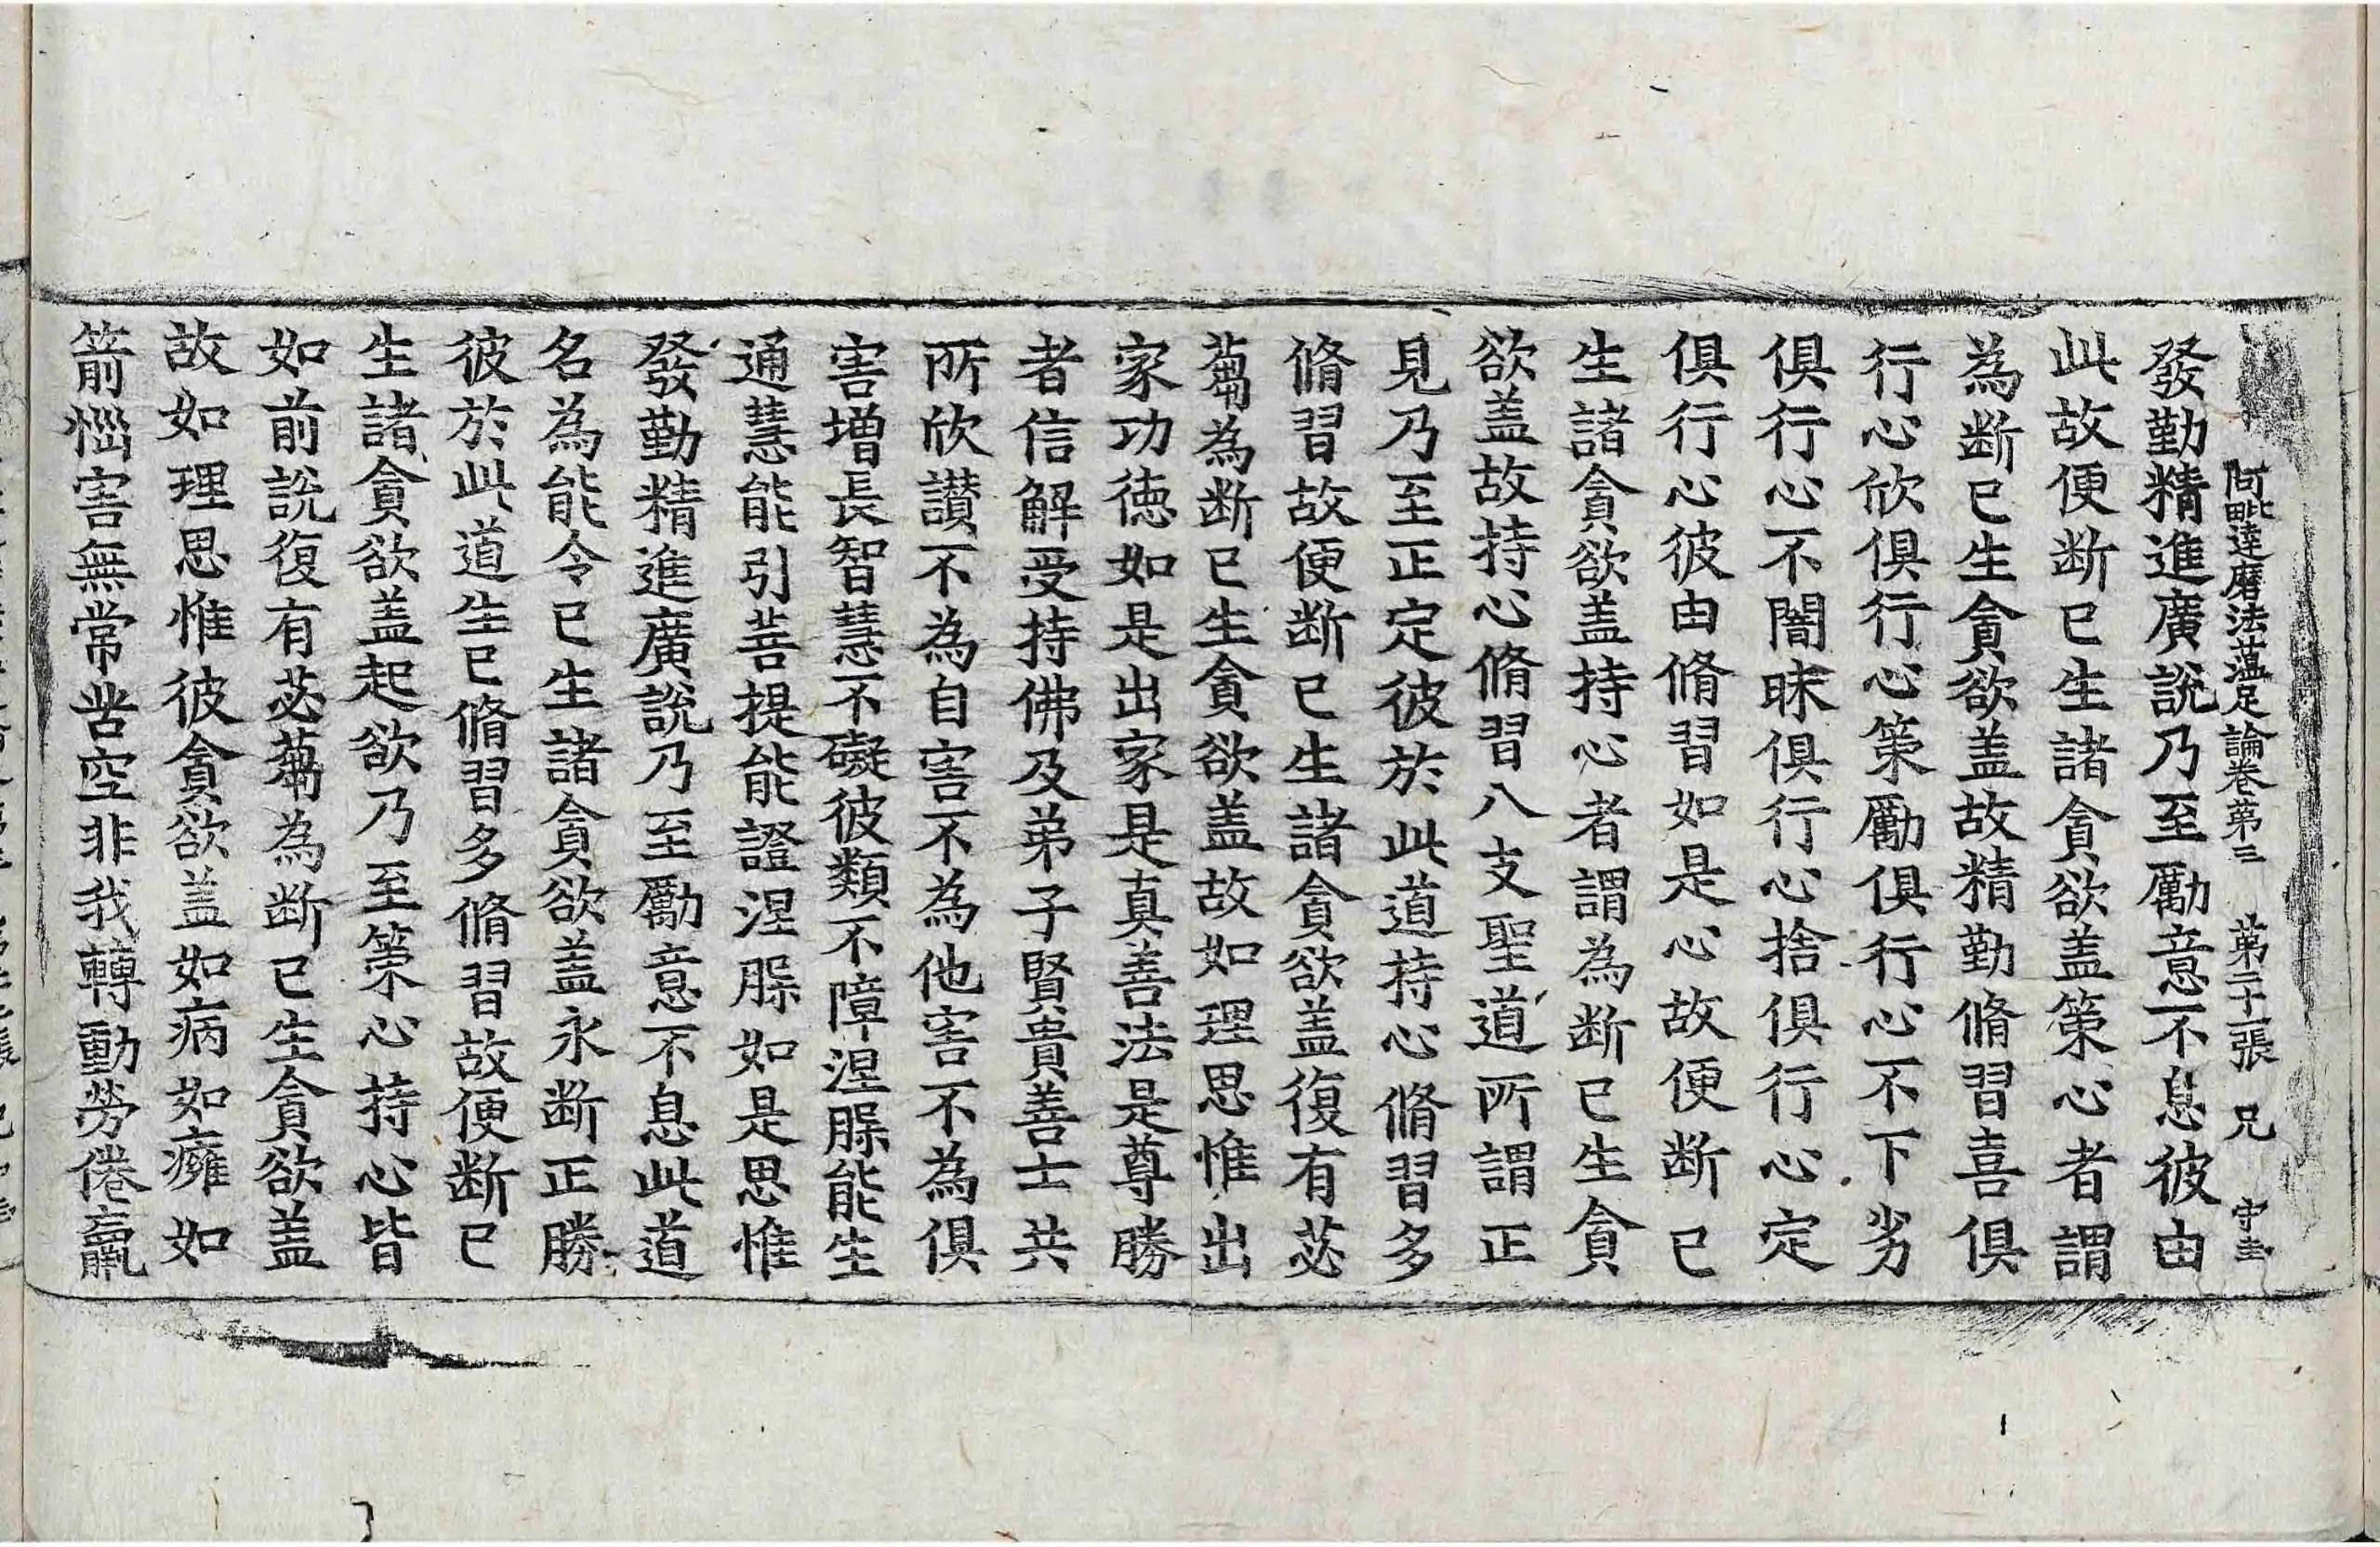 阿毗達磨法蘊足論卷第三 第二十一張 兄 守圭
發勤精進廣說乃至勵意不息彼由
此故便断已生諸貪欲盖策心者謂
為断已生貪欲盖故精勤脩習喜俱
行心欣俱行心策勵俱行心不下劣
俱行心不闇昧俱行心捨俱行心定
俱行心彼由脩習如是心故便断已
生諸貪欲盖持心者謂為断已生貪
欲盖故持心脩習八支聖道所謂正
見乃至正定彼於此道持心脩習多
脩習故便断已生諸貪欲盖復有苾
蒭為断已生貪欲盖故如理思惟出
家功德如是出家是真善法是尊勝
者信解受持佛及弟子賢貴善士共
所欣讃不為自害不為他害不為俱
害增長智慧不礙彼類不障涅槃能生
通慧能引菩提能證涅槃如是思惟
發勤精進廣說乃至勵意不息此道
名為能令已生諸貪欲盖永断正勝
彼於此道生已脩習多脩習故便断已
生諸貪欲盖起欲乃至策心持心皆
如前說復有苾蒭為断已生貪欲盖
故如理思惟彼貪欲盖如病如癰如
箭惱害無常苦空非我轉動勞倦羸